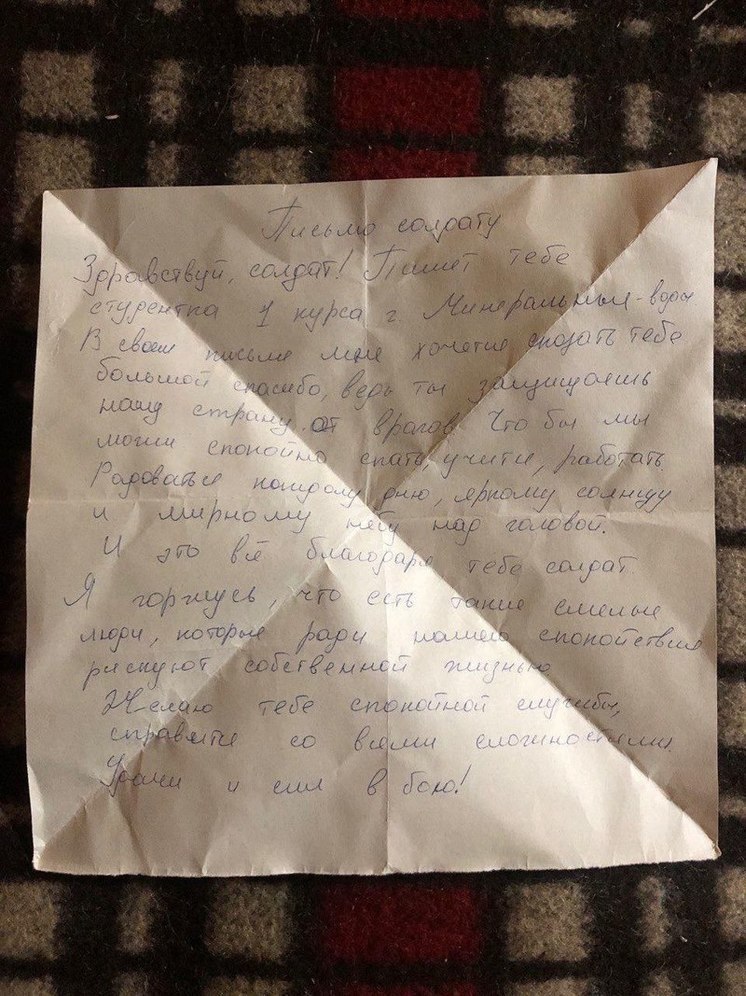 Письмо солдату
Здравствуй, солдат! Пишет тебе
студентка 1 курса г. Минеральные-воды
В своем письме мне хочется сказать тебе
большой спасибо, ведь ты защищаешь
нашу страну от врагов. Что бы мы
могли спокойно спать, учится, работать
Радоваться каждому дню, яркому солнцу
и мирному небу над головой.
И это всё благодаря тебе солдат.
Я горжусь, что есть такие смелые
люди, которые ради нашего спокойствия
рискуют собственной жизнью
Желаю тебе спокойной службы,
справится со всеми сложностями
Удачи и сил в бою!